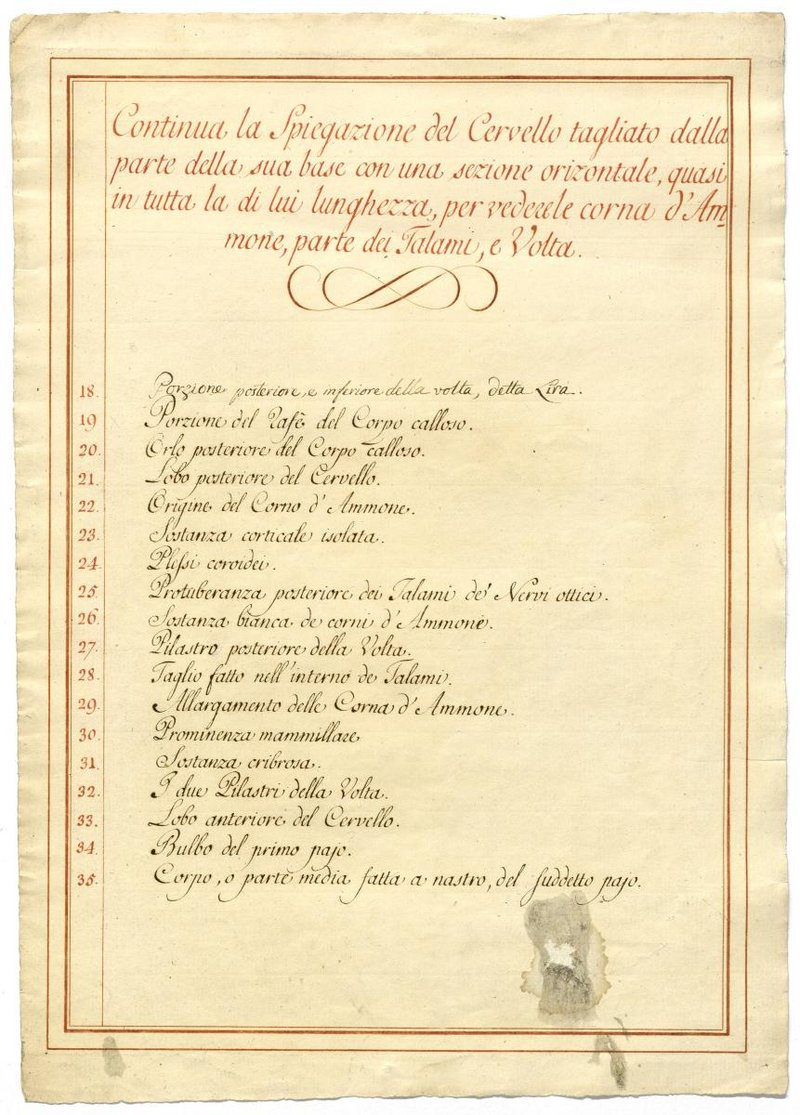 Continua la Spiegazione del Cervello tagliato dalla
parte della sua base con una sezione orizontale, quasi
in tutta la di lui lunghezza, per vedere le corna d'Am-
mone, parte dei Talami, e Volta.
18. Porzione posteriore, e inferiore della volta, detta Lira.
19 Porzione del Rafè del Corpo calloso.
20. Orlo posteriore del Corpo calloso.
21. Lobo posteriore del Cervello.
22. Origine del Corno d'Ammone.
23. Sostanza corticale isolata.
24. Plessi coroidei.
25. Protuberanza posteriore dei Talami de' Nervi ottici.
26. Sostanza bianca de corni d'Ammone.
27. Pilastro posteriore della Volta.
28. Taglio fatto nell'interno de Talami.
29. Allargamento delle Corna d'Ammone.
30. Prominenza mammillare
31. Sostanza cribrosa.
32. I due Pilastri della Volta.
33. Lobo anteriore del Cervello.
34. Bulbo del primo pajo.
35. Corpo, o parte media fatta a nastro, del suddetto pajo.